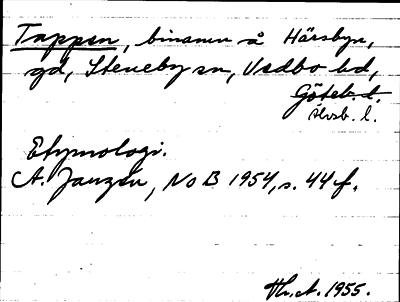 Tappen, binamn å Härsbyn,
gd, Steneby sn, Vedbo hd,
Göteb. l.
Älvsb. l.
Etymologi.
A. Janzén, NoB 1954, s. 44 f.
Hr. A. 1955.